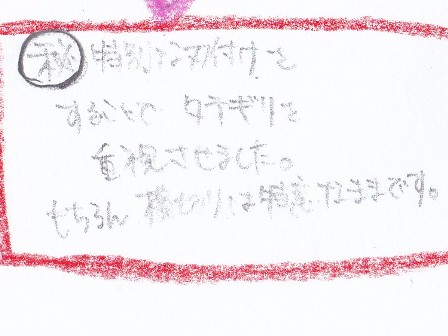 ㊙ 特別な刃付けを
することで タテギリを
重視させました。
もちろん 横切りは得意なままです。